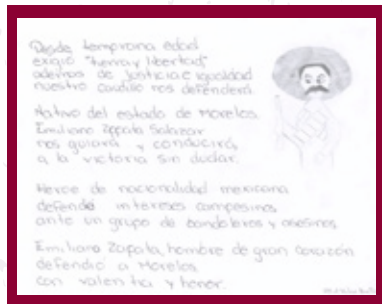 Desde temprana edad
exigió "tierra y libertad"
además de justicia e igualdad
nuestro caudillo nos defenderá.
Nativo del estado de Morelos
Emiliano Zapata Salazar
nos guiará y conducirá
a la victoria sin dudar.
Héroe de nacionalidad mexicana
defendió intereses campesinos
ante un grupo de bandoleros y asesinos
Emiliano Zapata, hombre de gran corazón
defendió a Morelos
con valentía y honor.